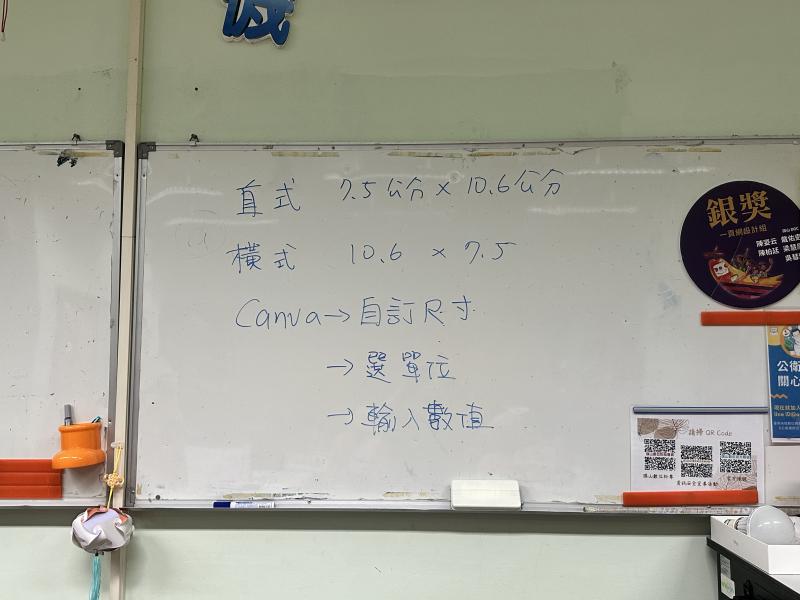 直式 7.5公分 × 10.6公分
橫式 10.6 × 7.5
Canva→自訂尺寸
→選單位
→輸入數值
銀獎
一頁網設計組
陳姿云
陳柏廷
請掃 QR Code
資訊安全宣導活動
公衛
關心